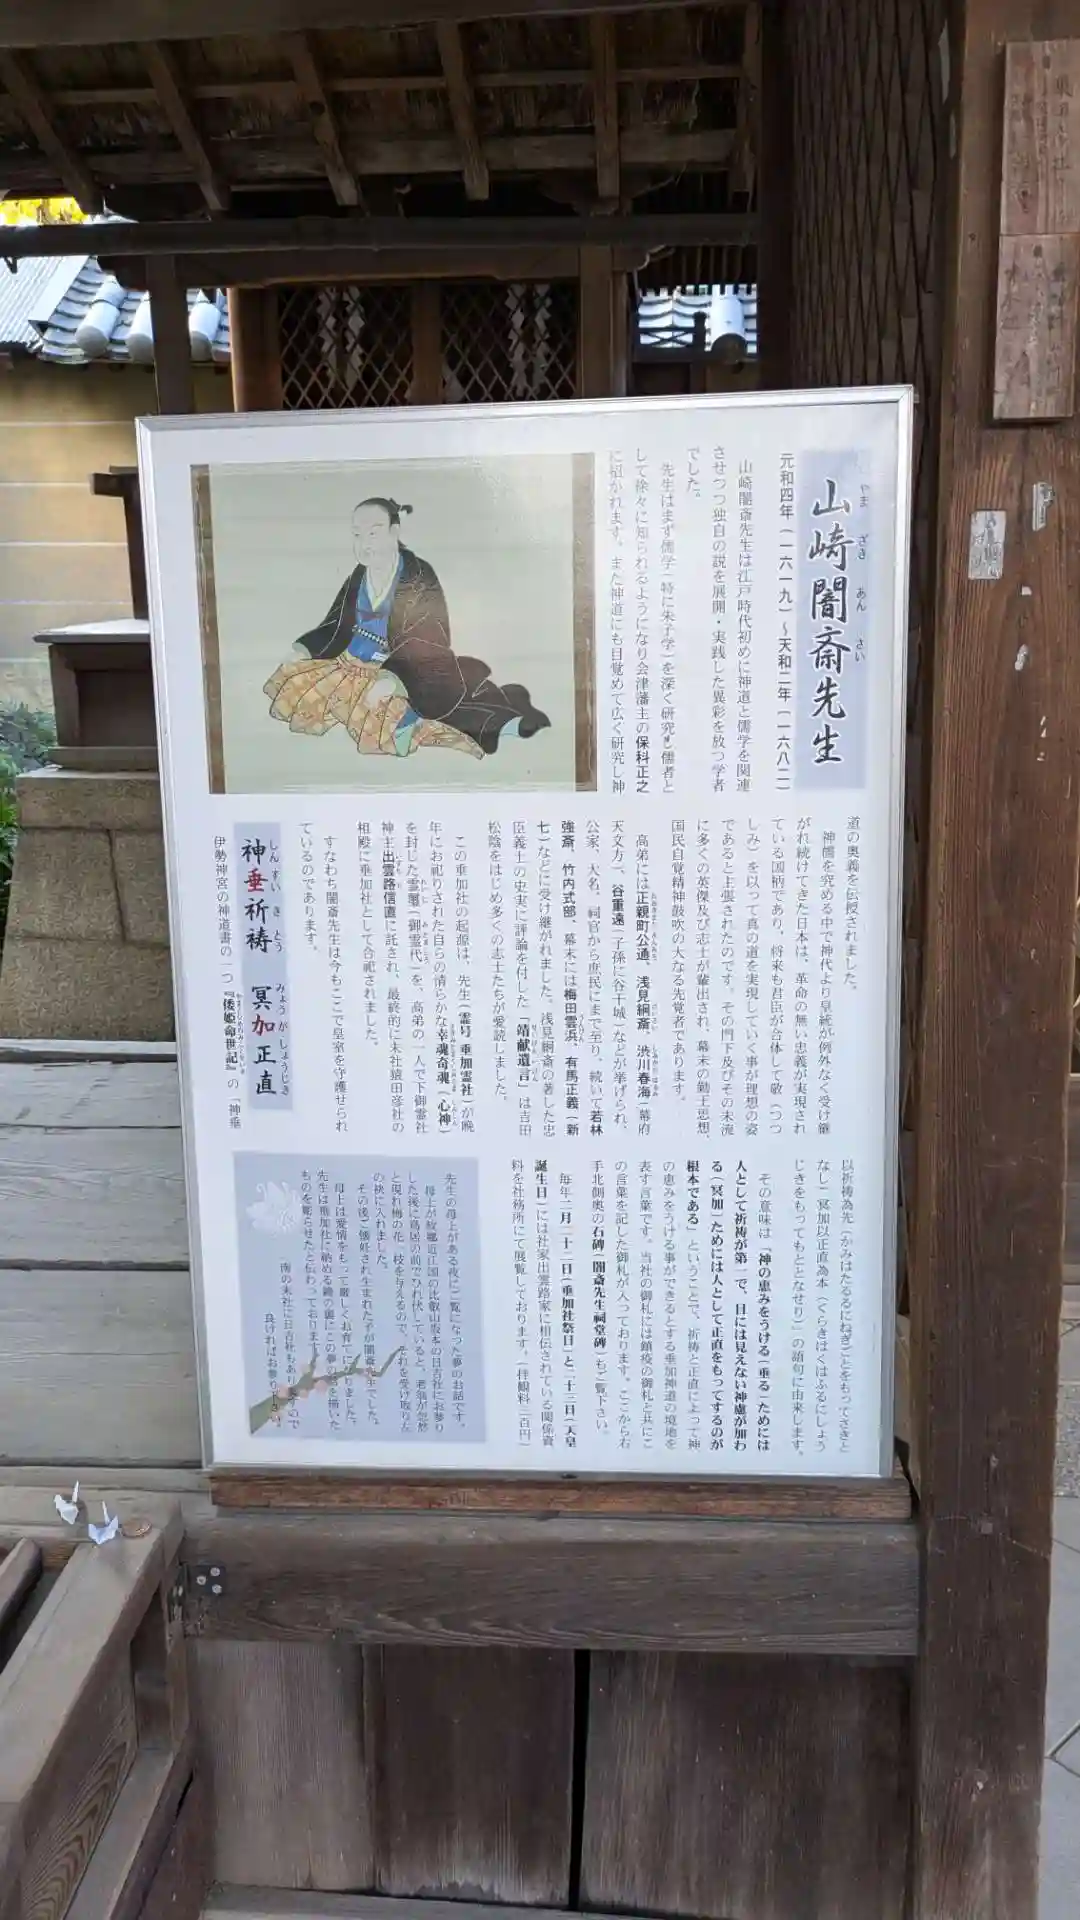 山崎闇斎先生
やま ざき あん さい
元和四年(一六一九)~天和二年(一六八二)
山崎闇斎先生は江戸時代初めに神道と儒学を関連
させつつ独自の説を展開・実践した異彩を放つ学者
でした。
先生はまず儒学(特に朱子学)を深く研究し儒者と
して徐々に知られるようになり会津藩主の保科正之
に招かれます。また神道にも目覚めて広く研究し神
道の奥義を伝授されました。
神儒を究める中で神代より皇統が例外なく受け継
がれ続けてきた日本は、革命の無い忠義が実現され
ている国柄であり、将来も君臣が合体して敬(つつ
しみ)を以って真の道を実現していく事が理想の姿
であると主張されたのです。その門下及びその末流
に多くの英傑及び志士が輩出され、幕末の勤王思想、
国民自覚精神鼓吹の大なる先覚者であります。
高弟には正親町公通、浅見絅斎、渋川春海(幕府
天文方)、谷重遠(子孫に谷干城)などが挙げられ、
公家、大名、祠官から庶民にまで至り、続いて若林
強斎、竹内式部、幕末には梅田雲浜、有馬正義(新
七)などに受け継がれました。浅見絅斎の著した忠
臣義士の史実に評論を付した「靖献遺言」は吉田
松陰をはじめ多くの志士たちが愛読しました。
この垂加社の起源は、先生(霊号 垂加霊社)が晩
年にお祀りされた自らの清らかな幸魂奇魂(心神)
を封じた霊璽(御霊代)を、高弟の一人で下御霊社
神主出雲路信直に託され、最終的に末社猿田彦社の
相殿に垂加社として合祀されました。
すなわち闇斎先生は今もここで皇室を守護せられ
ているのであります。
神垂祈祷 冥加正直
しんすい き とう みょう が しょうじき
伊勢神宮の神道書の一つ『倭姫命世記』の「神垂
以祈祷為先(かみはたるるにねぎごとをもってさきと
なし)冥加以正直為本(くらきはくはふるにしょう
じきをもってもととなせり)」の語句に由来します。
その意味は「神の恵みをうける(垂る)ためには
人として祈祷が第一で、目には見えない神慮が加わ
る(冥加)ためには人として正直をもってするのが
根本である」ということで、祈祷と正直によって神
の恵みをうける事ができるとする垂加神道の境地を
表す言葉です。当社の御札には鎮疫の御札と共にこ
の言葉を記した御札が入っております。ここから右
手北側奥の石碑(闇斎先生祠堂碑)もご覧下さい。
毎年二月二十二日(垂加社祭日)と二十三日(天皇
誕生日)には社家出雲路家に相伝されている関係資
料を社務所にて展覧しております。(拝観料二百円)
先生の母上がある夜にご覧になった夢のお話です。
母上が故郷近江国の比叡山坂本の日吉社にお参り
した後に鳥居の前でひれ伏していると、老翁が忽然
と現れ梅の花一枝を与えるので、それを受け取り左
の袂に入れました。
その後ご懐妊され生まれた子が闇斎先生でした。
母上は愛情をもって厳しくお育てになりました。
先生は垂加社に納める鏡の裏にこの夢の話を描いた
ものを彫らせたと伝わっております。
南の末社に日吉社もありますので
良ければお参り下さい。